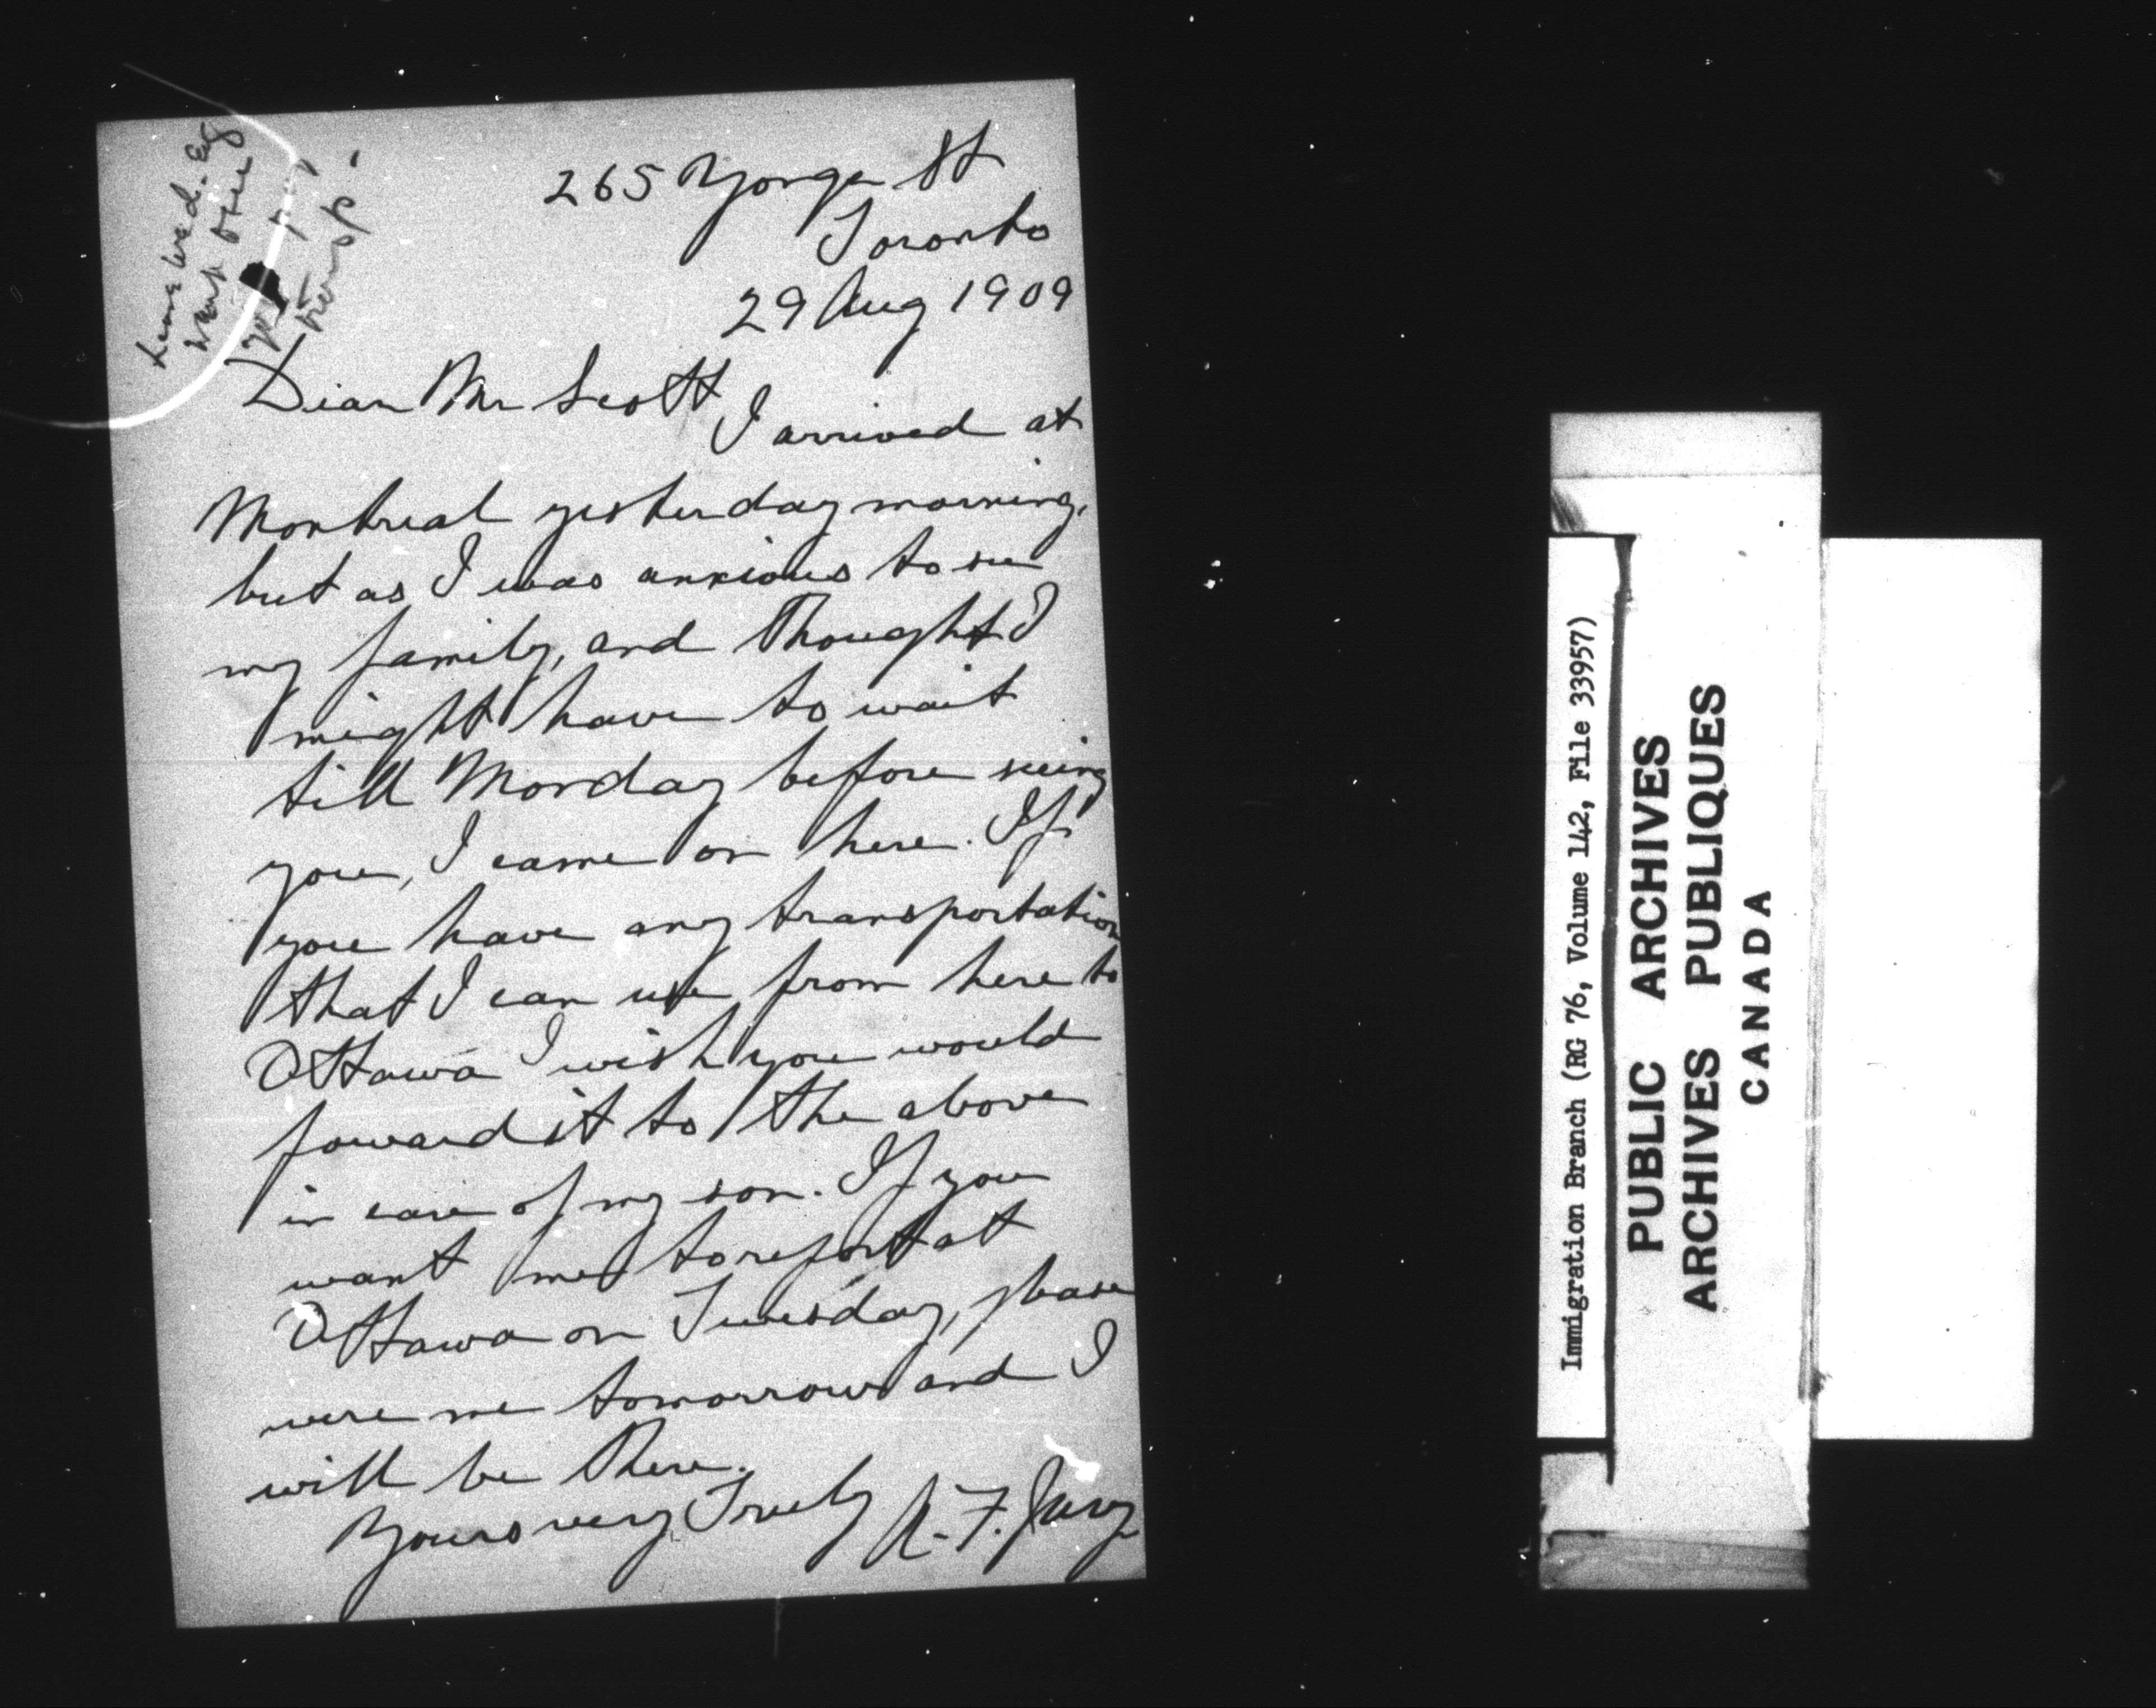 265 Yonge St
Toronto
29 Aug 1909
Dear Mr Scott
I arrived at
Montreal yesterday morning,
but as I was anxious to see
my family, and thought I
might have to wait
till Monday before seeing
you, I came on here. If
you have any transportation
that I can use from here to
Ottawa I wish you would
forward it to the above
in care of my son. If you
want me to report at
Ottawa on Tuesday, please
wire me tomorrow and I
will be there.
Yours very Truly A. F. Jury
Immigration Branch (RG 76, Volume 142, File 33957)
PUBLIC ARCHIVES
ARCHIVES PUBLIQUES
CANADA